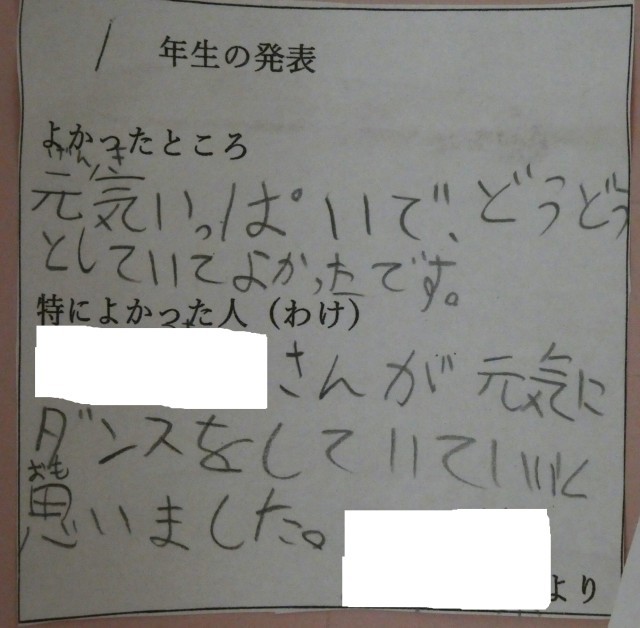 1 年生の発表
よかったところ
げんき
元気いっぱいで、どうどう
としていてよかったです。
特によかった人（わけ）
さんが元気に
ダンスをしていていいと
おも
思いました。
より